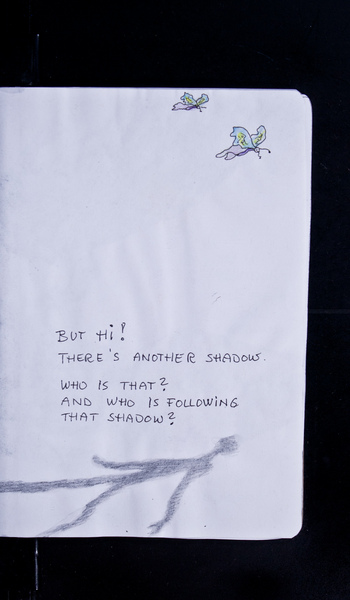 BUT Hi!
THERE'S ANOTHER SHADOW.
WHO IS THAT?
AND WHO IS FOLLOWING
THAT SHADOW?